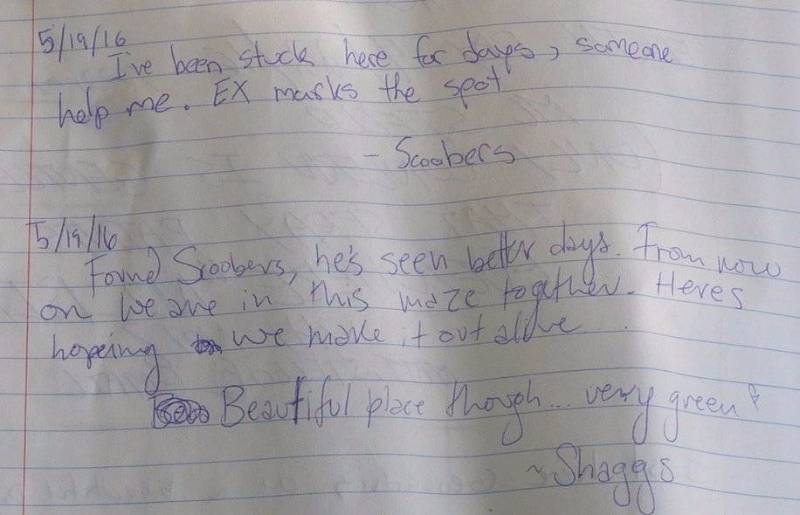 5/19/16
I've been stuck here for days, someone
help me. EX marks the spot
- Scoobers
5/19/16
Found Scoobers, he's seen better days. From now
on we are in this maze together. Heres
hopeing we make it out alive
Beautiful place though... very green
~Shaggs